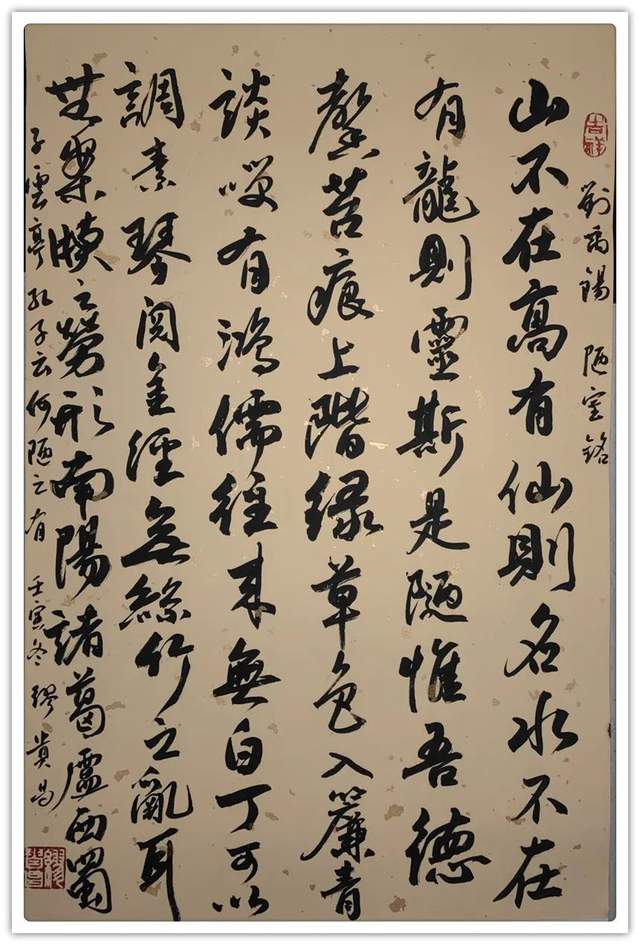 吉祥
劉禹錫 陋室銘
山不在高有仙則名水不在
有龍則靈斯是陋惟吾德
馨苔痕上階緑草色入簾青
談咲有鴻儒往来無白丁可以
調素琴閲金經無絲竹之亂耳
無案牘之勞形南陽諸葛廬西蜀
子雲亭孔子云何陋之有 壬寅冬 繆貴昌